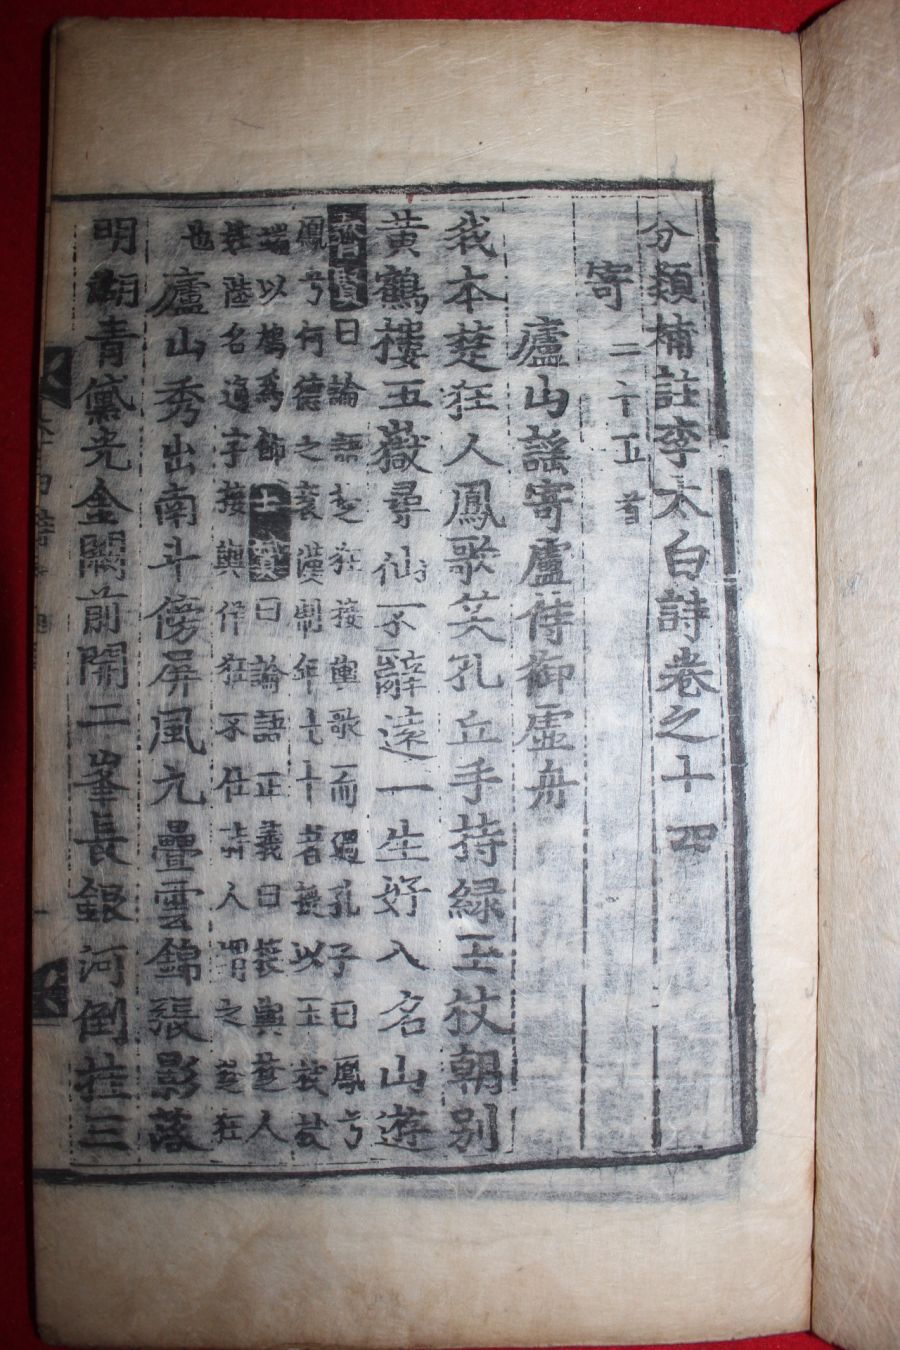 分類補註李太白詩卷之十四
寄二十五首
廬山謠寄盧侍御虛舟
我本楚狂人鳳歌笑孔丘手持綠玉杖朝別
黃鶴樓五嶽尋仙不辭遠一生好入名山遊
齊賢曰論語楚狂接輿歌而過孔子曰鳳兮
鳳兮何德之衰漢制年七十者授以玉杖杖
端以鳩爲飾士贇曰論語正義曰接輿楚人
姓陸名通字接輿佯狂不仕時人謂之楚狂
也廬山秀出南斗傍屛風九疊雲錦張影落
明湖青黛光金闕前開二峯長銀河倒挂三